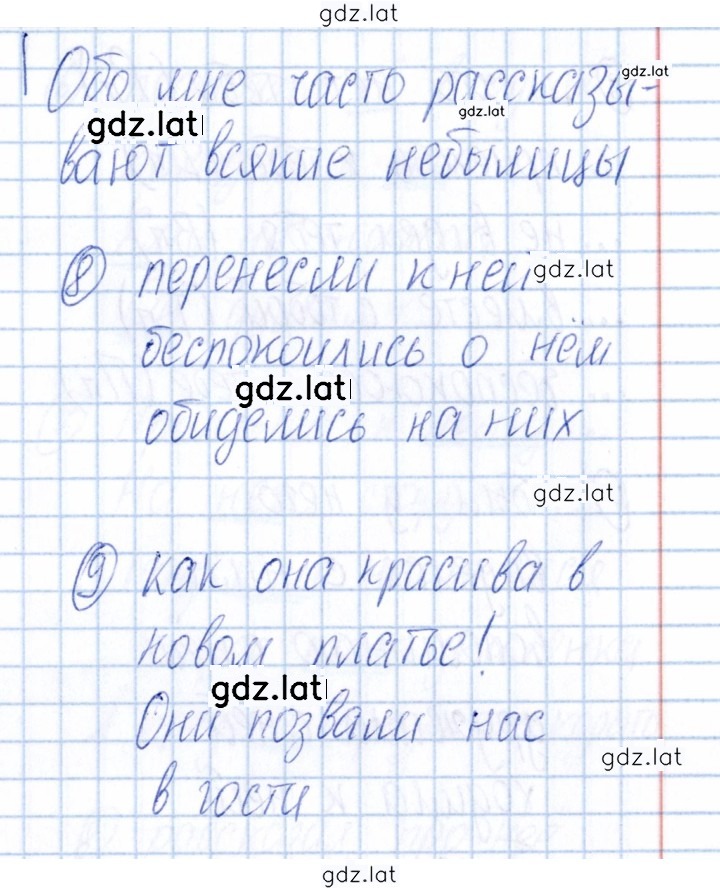 gdz.lat
Обо мне часто рассказы-
gdz.lat
gdz.lat
gdz.lat
вают всякие небылицы
8 перенесли к ней
gdz.lat
беспокоились о нём
gdz.lat
обиделись на них
gdz.lat
9 как она красива в
новом платье!
gdz.lat
Они позвали нас
gdz.lat
в гости
gdz.lat